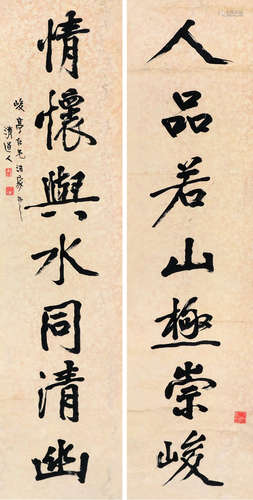 人品若山極崇峻
情懷與水同清幽
峻亭仁兄法家正
清道人